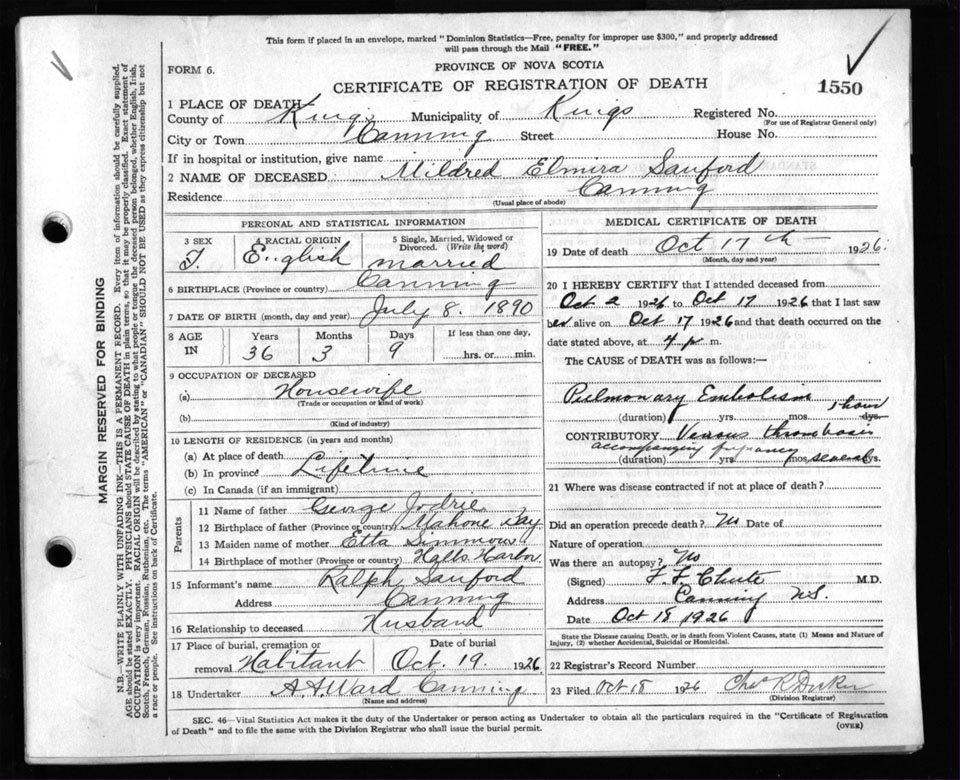 This form if placed in an envelope, marked "Dominion Statistics—Free, penalty for improper use $300," and properly addressed
will pass through the Mail "FREE."
FORM 6.
PROVINCE OF NOVA SCOTIA
CERTIFICATE OF REGISTRATION OF DEATH
1550
1 PLACE OF DEATH—
County of Kings Municipality of Kings Registered No.
(For use of Registrar General only)
City or Town Canning Street House No.
If in hospital or institution, give name
2 NAME OF DECEASED Mildred Elmira Sanford
Residence Canning
(Usual place of abode)
PERSONAL AND STATISTICAL INFORMATION
3 SEX 4 RACIAL ORIGIN 5 Single, Married, Widowed or Divorced. (Write the word)
F. English married
6 BIRTHPLACE (Province or country) Canning
7 DATE OF BIRTH (month, day and year) July 8. 1890
8 AGE IN Years Months Days If less than one day,
36 3 9 hrs. or min.
9 OCCUPATION OF DECEASED
(a) Housewife
(Trade or occupation or kind of work)
(b)
(Kind of industry)
10 LENGTH OF RESIDENCE (in years and months)
(a) At place of death
(b) In province Lifetime
(c) In Canada (if an immigrant)
Parents
11 Name of father George
12 Birthplace of father (Province or country) Mahone Bay
13 Maiden name of mother Etta Simmons
14 Birthplace of mother (Province or country) Halls Harbor
15 Informant's name Ralph Sanford
Address Canning
16 Relationship to deceased Husband
17 Place of burial, cremation or removal Habitant Date of burial Oct. 19. 1926
18 Undertaker A. A. Ward Canning
(Name and address)
MEDICAL CERTIFICATE OF DEATH
19 Date of death Oct 17th 1926.
(Month, day and year)
20 I HEREBY CERTIFY that I attended deceased from
Oct 2 1926 to Oct 17 1926 that I last saw
her alive on Oct 17 1926 and that death occurred on the
date stated above, at 4 p m.
The CAUSE of DEATH was as follows:—
Pulmonary Embolism 1 hour
(duration) yrs. mos. dys.
CONTRIBUTORY Venous thrombosis
accompanying pregnancy
(duration) yrs. mos. several dys.
21 Where was disease contracted if not at place of death?
Did an operation precede death? No Date of
Nature of operation.
Was there an autopsy? No
(Signed) F. F. Chute M.D.
Address Canning N.S.
Date Oct 18 1926
State the Disease causing Death, or in death from Violent Causes, state (1) Means and Nature of
Injury, (2) whether Accidental, Suicidal or Homicidal.
22 Registrar's Record Number
23 Filed Oct 18 1926 Chas R
(Division Registrar)
SEC. 46—Vital Statistics Act makes it the duty of the Undertaker or person acting as Undertaker to obtain all the particulars required in the "Certificate of Registration
of Death" and to file the same with the Division Registrar who shall issue the burial permit.
(OVER)
MARGIN RESERVED FOR BINDING
N.B.—WRITE PLAINLY WITH UNFADING INK—THIS IS A PERMANENT RECORD. Every item of information should be carefully supplied.
AGE should be stated EXACTLY. PHYSICIANS should STATE CAUSE OF DEATH in plain terms, so that it may be properly classified. Exact statement of
OCCUPATION is very important. RACIAL ORIGIN will be described by stating to what people or tongue the deceased person belonged, whether English, Irish,
Scotch, French, German, Russian, Ruthenian, etc. The terms "AMERICAN" or "CANADIAN" SHOULD NOT BE USED as they express citizenship but not
a race or people. See instructions on back of Certificate.